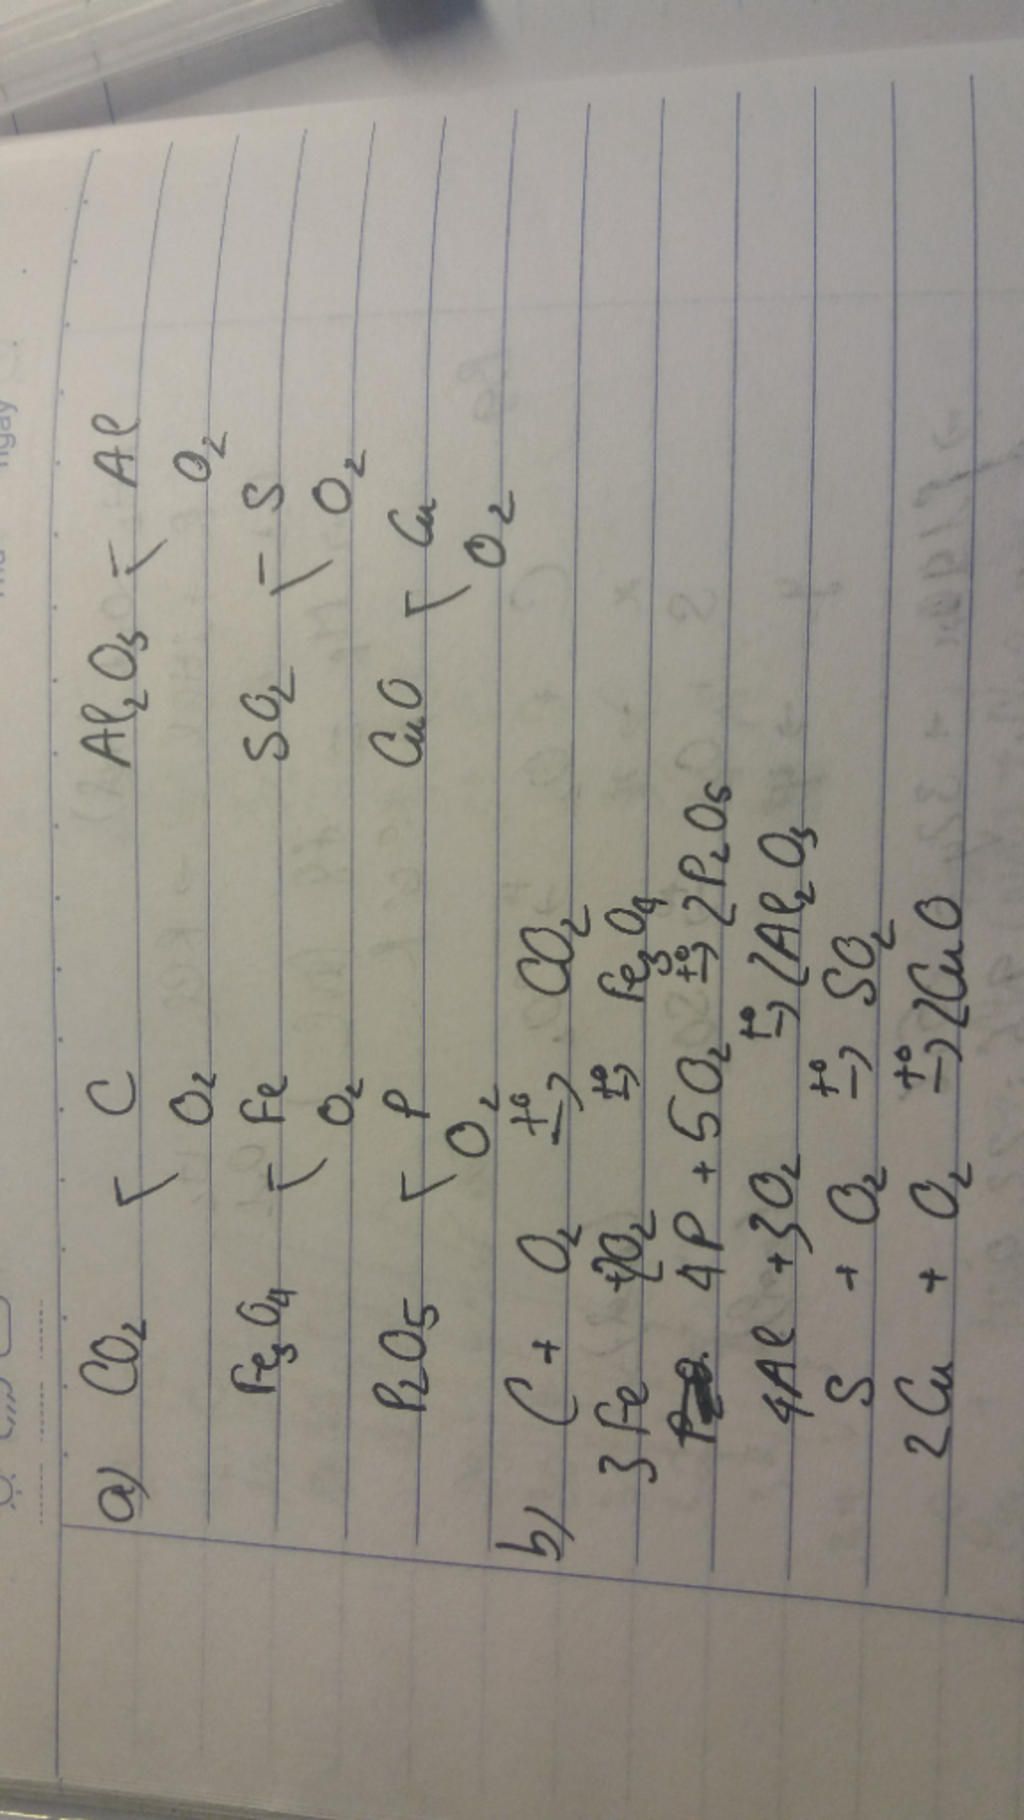 a) CO2 C Al2O3 Al
O2 O2
Fe3O4 Fe SO2 S
O2 O2
P2O5 P CuO Cu
O2 O2
b) C + O2 t° → CO2
3Fe + 2O2 t° → Fe3O4
4P + 5O2 t° → 2P2O5
4Al + 3O2 t° → 2Al2O3
S + O2 t° → SO2
2Cu + O2 t° → 2CuO